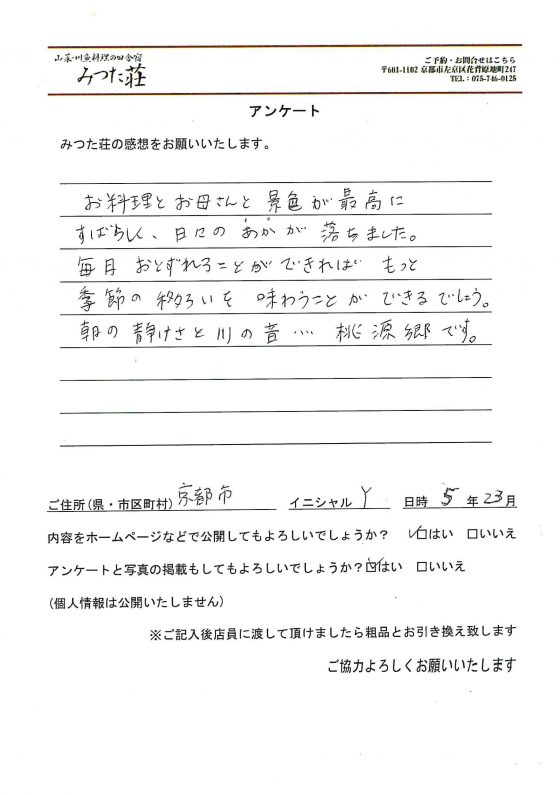 山菜・川魚料理の田舎宿
みつた荘
ご予約・お問合せはこちら
〒601-1102 京都市左京区花背原地町247
TEL：075-746-0125
アンケート
みつた荘の感想をお願いいたします。
お料理とお母さんと景色が最高に
すばらしく、日々のあかが落ちました。
毎月おとずれることができればもっと
季節の移ろいを味わうことができるでしょう。
朝の静けさと川の音…… 桃源郷です。
ご住所(県・市区町村) 京都市 イニシャル Y 日時 5年23月
内容をホームページなどで公開してもよろしいでしょうか？ ☑はい □いいえ
アンケートと写真の掲載もしてもよろしいでしょうか？☑はい □いいえ
(個人情報は公開いたしません)
※ご記入後店員に渡して頂けましたら粗品とお引き換え致します
ご協力よろしくお願いいたします